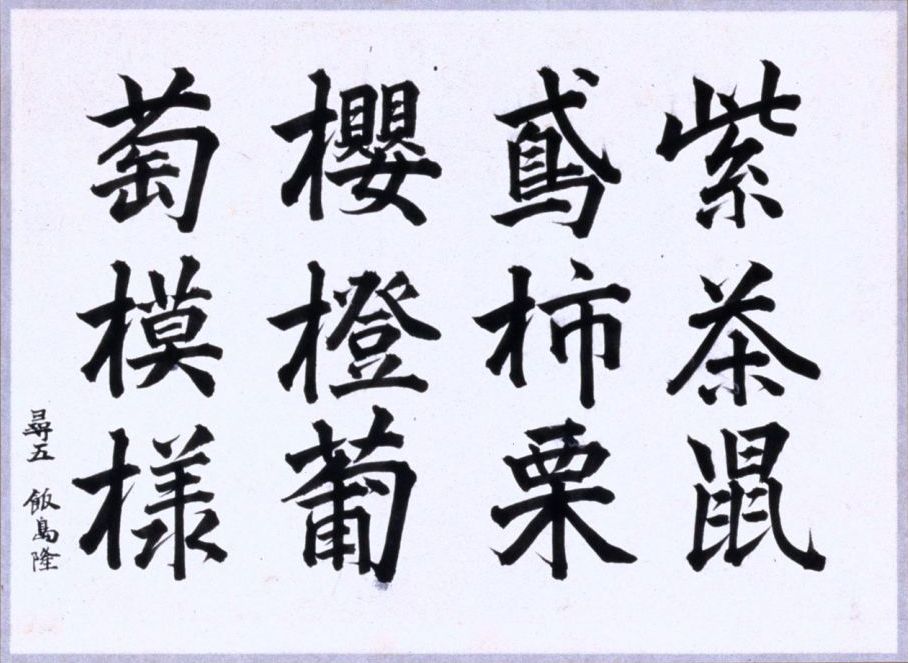 紫茶鼠
鳶柿栗
櫻橙葡
萄模様
尋五 飯島隆